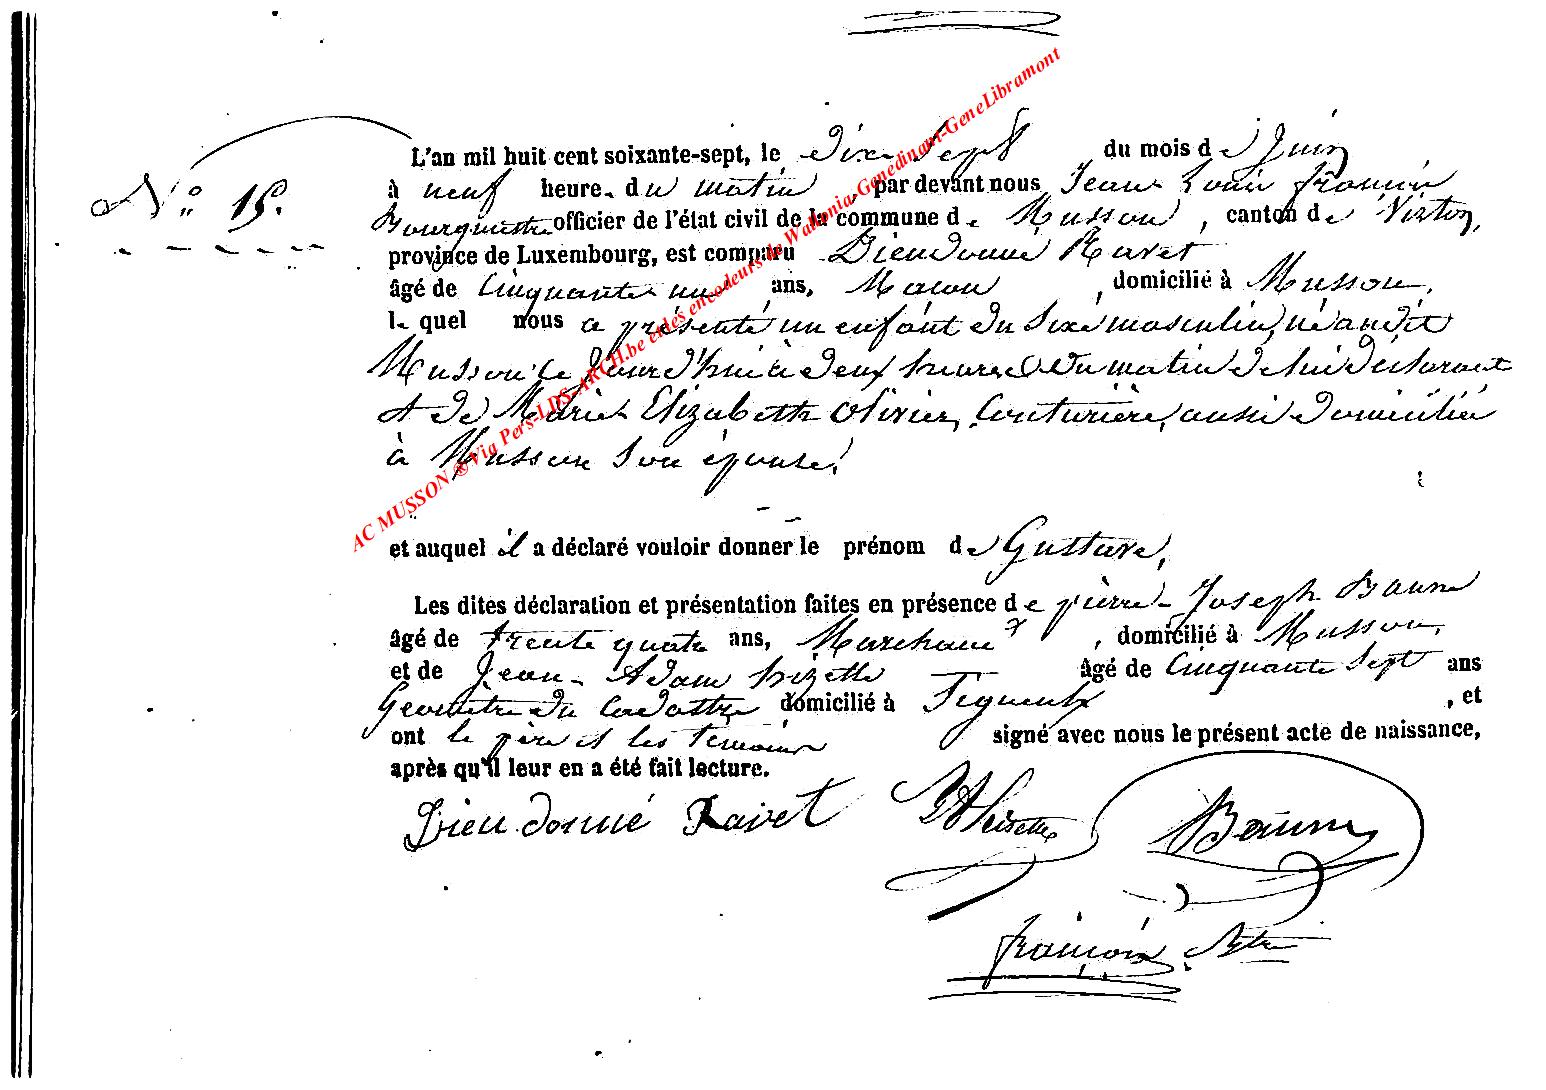 L'an mil huit cent soixante-sept, le dixe Sept du mois de Juin
N° 15.
à neuf heure du matin, par devant nous Jean Louis françois
Bourgmestre officier de l'état civil de la commune de Musson, canton de Virton,
province de Luxembourg, est comparu Dieudonné Ravet
âgé de Cinquante un ans, Macon, domicilié à Musson,
le quel nous a présenté un enfant du Sixe masculin, né audit
Musson ce jourd'hui à deux heures du matin de lui déclarant
et de Marie Elizabeth Olivier, Couturière, aussi domiciliée
à Musson Son épouse,
et auquel il a déclaré vouloir donner le prénom de Gustave,
Les dites déclaration et présentation faites en présence de pierre Joseph
âgé de trente quatre ans, Marchand, domicilié à Musson,
et de Jean Adam hizette âgé de Cinquante Sept ans
Géomètre du Cadastre domicilié à , et
ont le père et les temoins signé avec nous le présent acte de naissance,
après qu'il leur en a été fait lecture.
Dieudonné Ravet
françois
AC MUSSON ® Via Pers-LDS-ARCH.be et des encodeurs de Wallonia-Genedinant-GeneLibramont